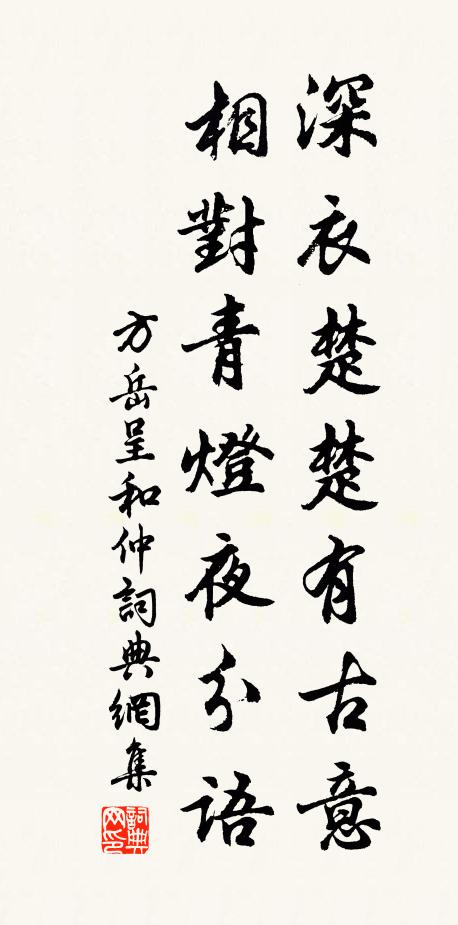 深衣楚楚有古意
相對青燈夜分語
方岳呈和仲詞典網集
詞典網印